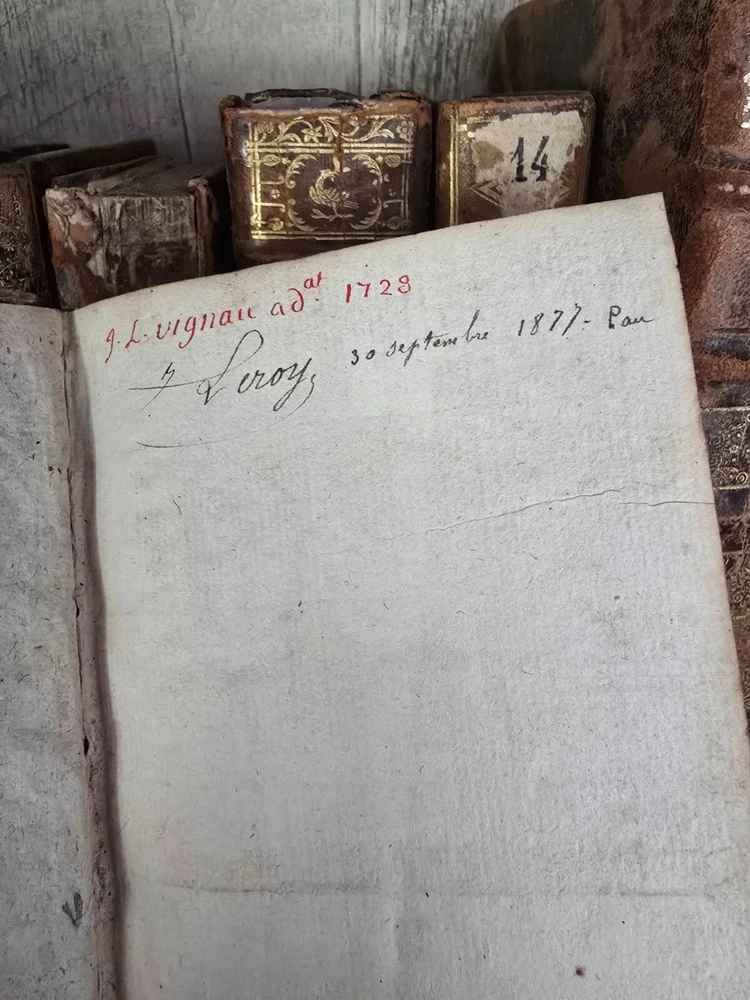 14
J. L. vignau ad.at 1728
J Leroy 30 septembre 1877 - Pau